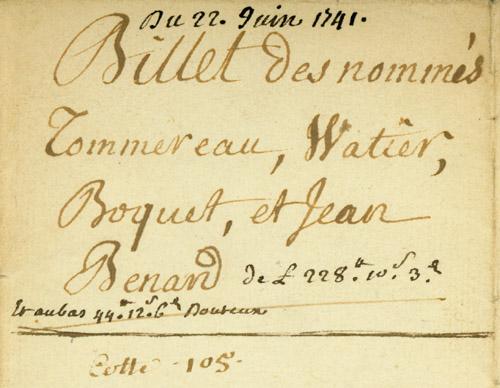 Du 22. Juin 1741.
Billet des nommés
Tommereau, Watier,
Boquet, et Jean
Benard de £ 228.ᵗᵗ 10.ˢ 3.ᵈ
Et aubas 44.ᵗᵗ 12.ˢ 6.ᵈ Douteux
Cotte 105.